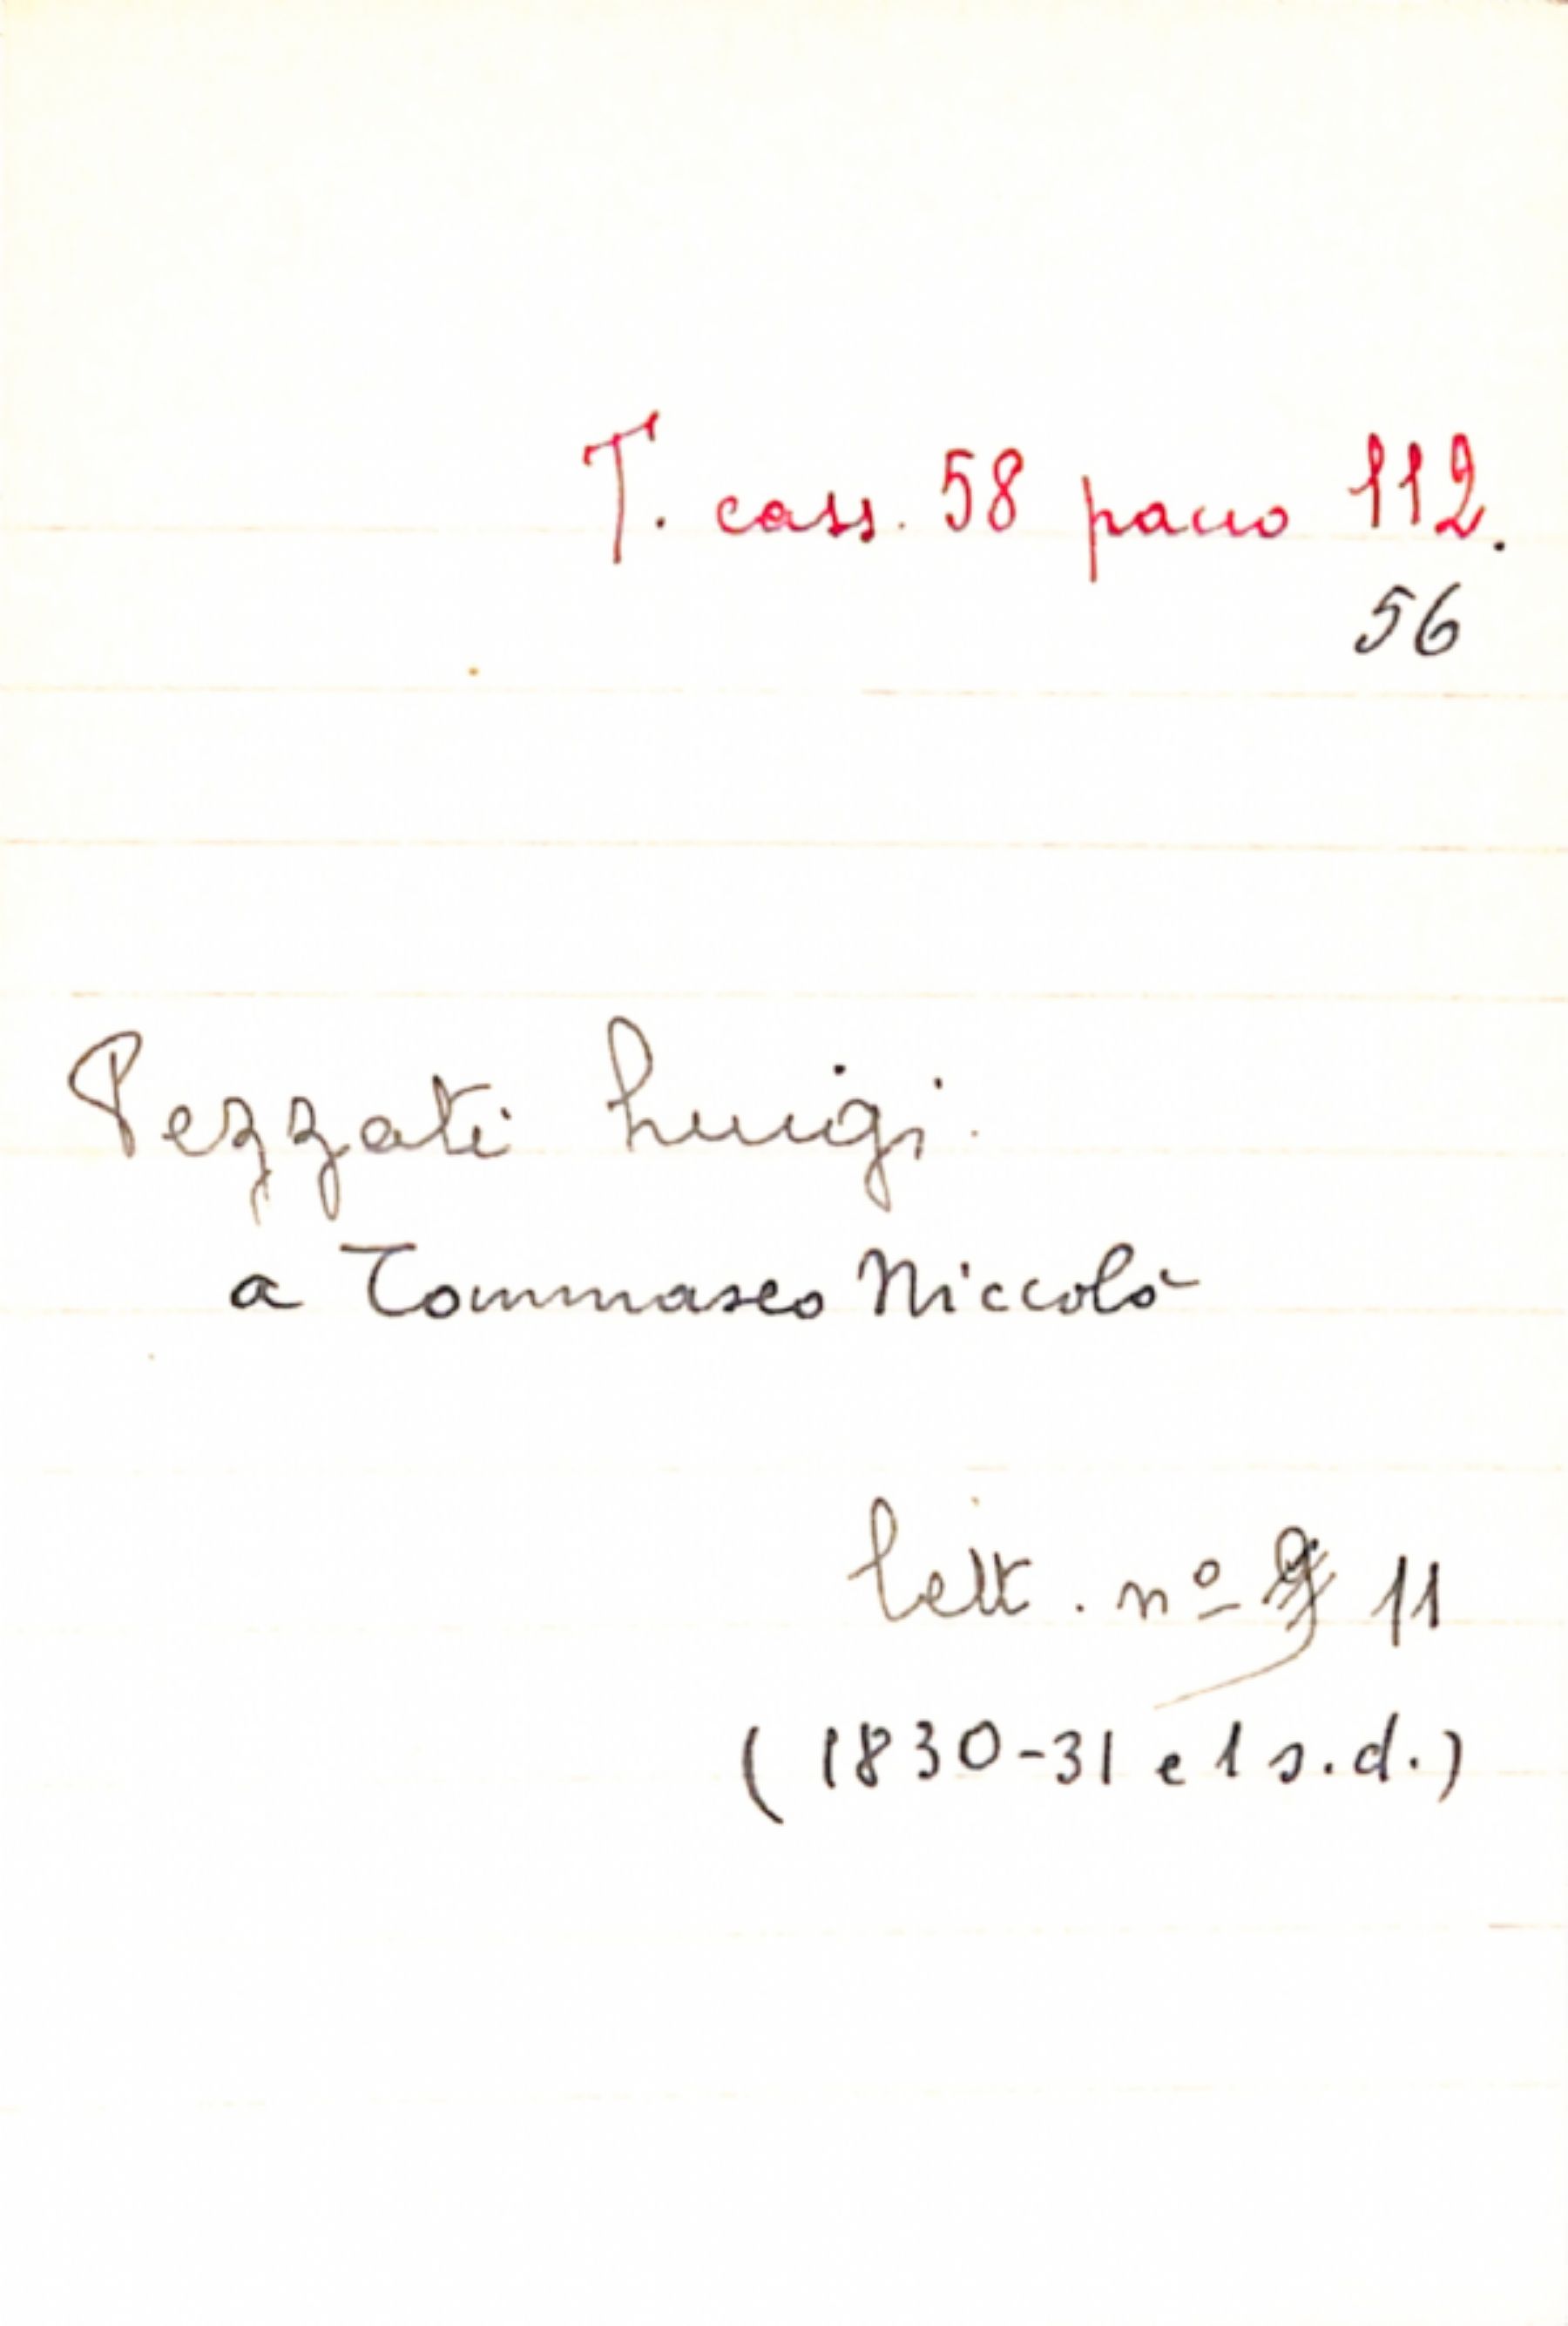 T. cass. 58 pacco 112.
56
Pezzati Luigi.
a Tommaseo Niccolò
lett. nº 11
(1830-31 e 1 s.d.)